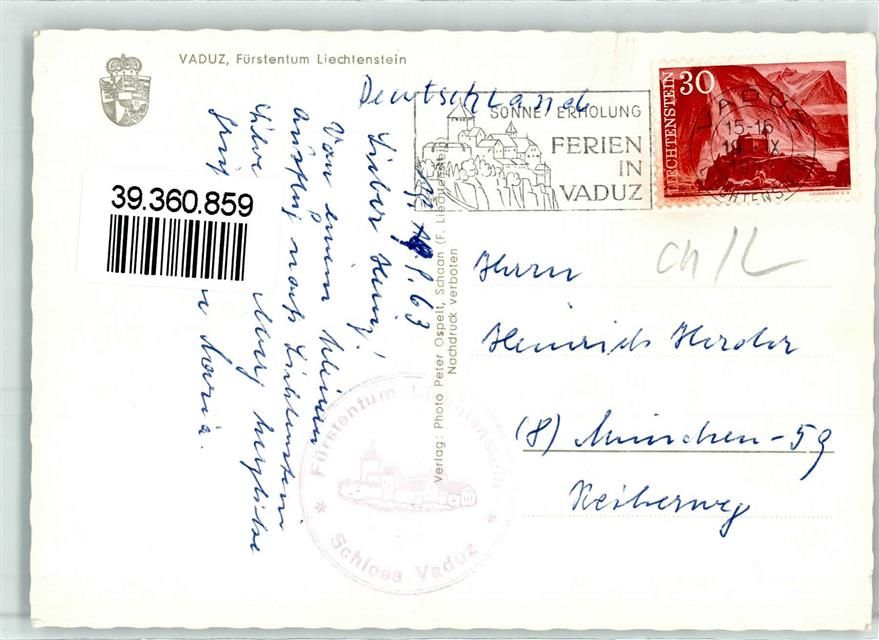 VADUZ, Fürstentum Liechtenstein
Deutschland
SONNE ERHOLUNG
FERIEN
IN
VADUZ
30
LIECHTENSTEIN
VADUZ
15-16
19 IX
LIECHTENSTEIN
39.360.859
63
Lieber Heinz!
Von einem kleinen
Ausflug nach Lichtenstein
herzliche
Maria.
Verlag: Photo Peter Ospelt, Schaan (F. Liechtenstein)
Nachdruck verboten
Herrn
Heinrich Herder
(8) München-59
Fürstentum Liechtenstein
* Schloss Vaduz *